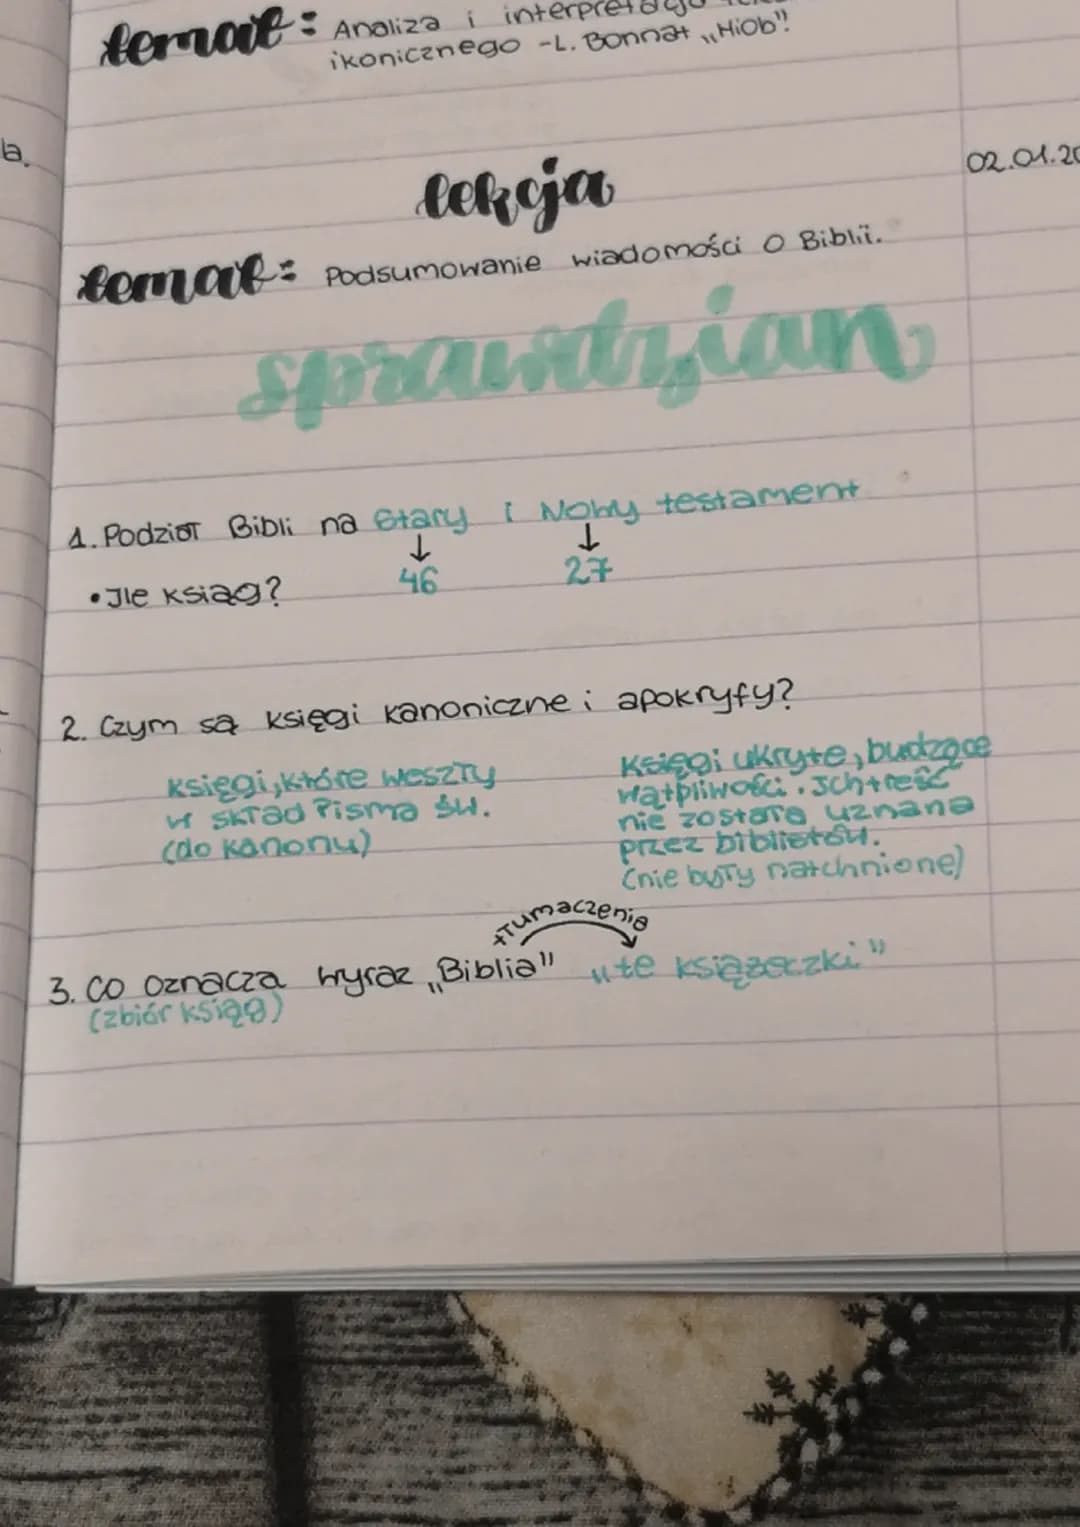 temat: Analiza i interpretacja
ikonicznego -L. Bonnat „Hiob".
a.
lekcja
02.01.20
temat: Podsumowanie wiadomości o Biblii.
sprawdzian
1. Podział Bibli na Stary i Nowy testament
• Ile ksiąg?
46
27
2. Czym są księgi kanoniczne i apokryfy?
księgi, które weszły
w skład Pisma św.
(do kanonu)
Księgi ukryte, budzące
wątpliwości. Ich treść
nie została uznana
przez biblistów.
(nie były natchnione)
tłumaczenie
3. Co oznacza wyraz „Biblia" „te książeczki"
(zbiór ksiąg)